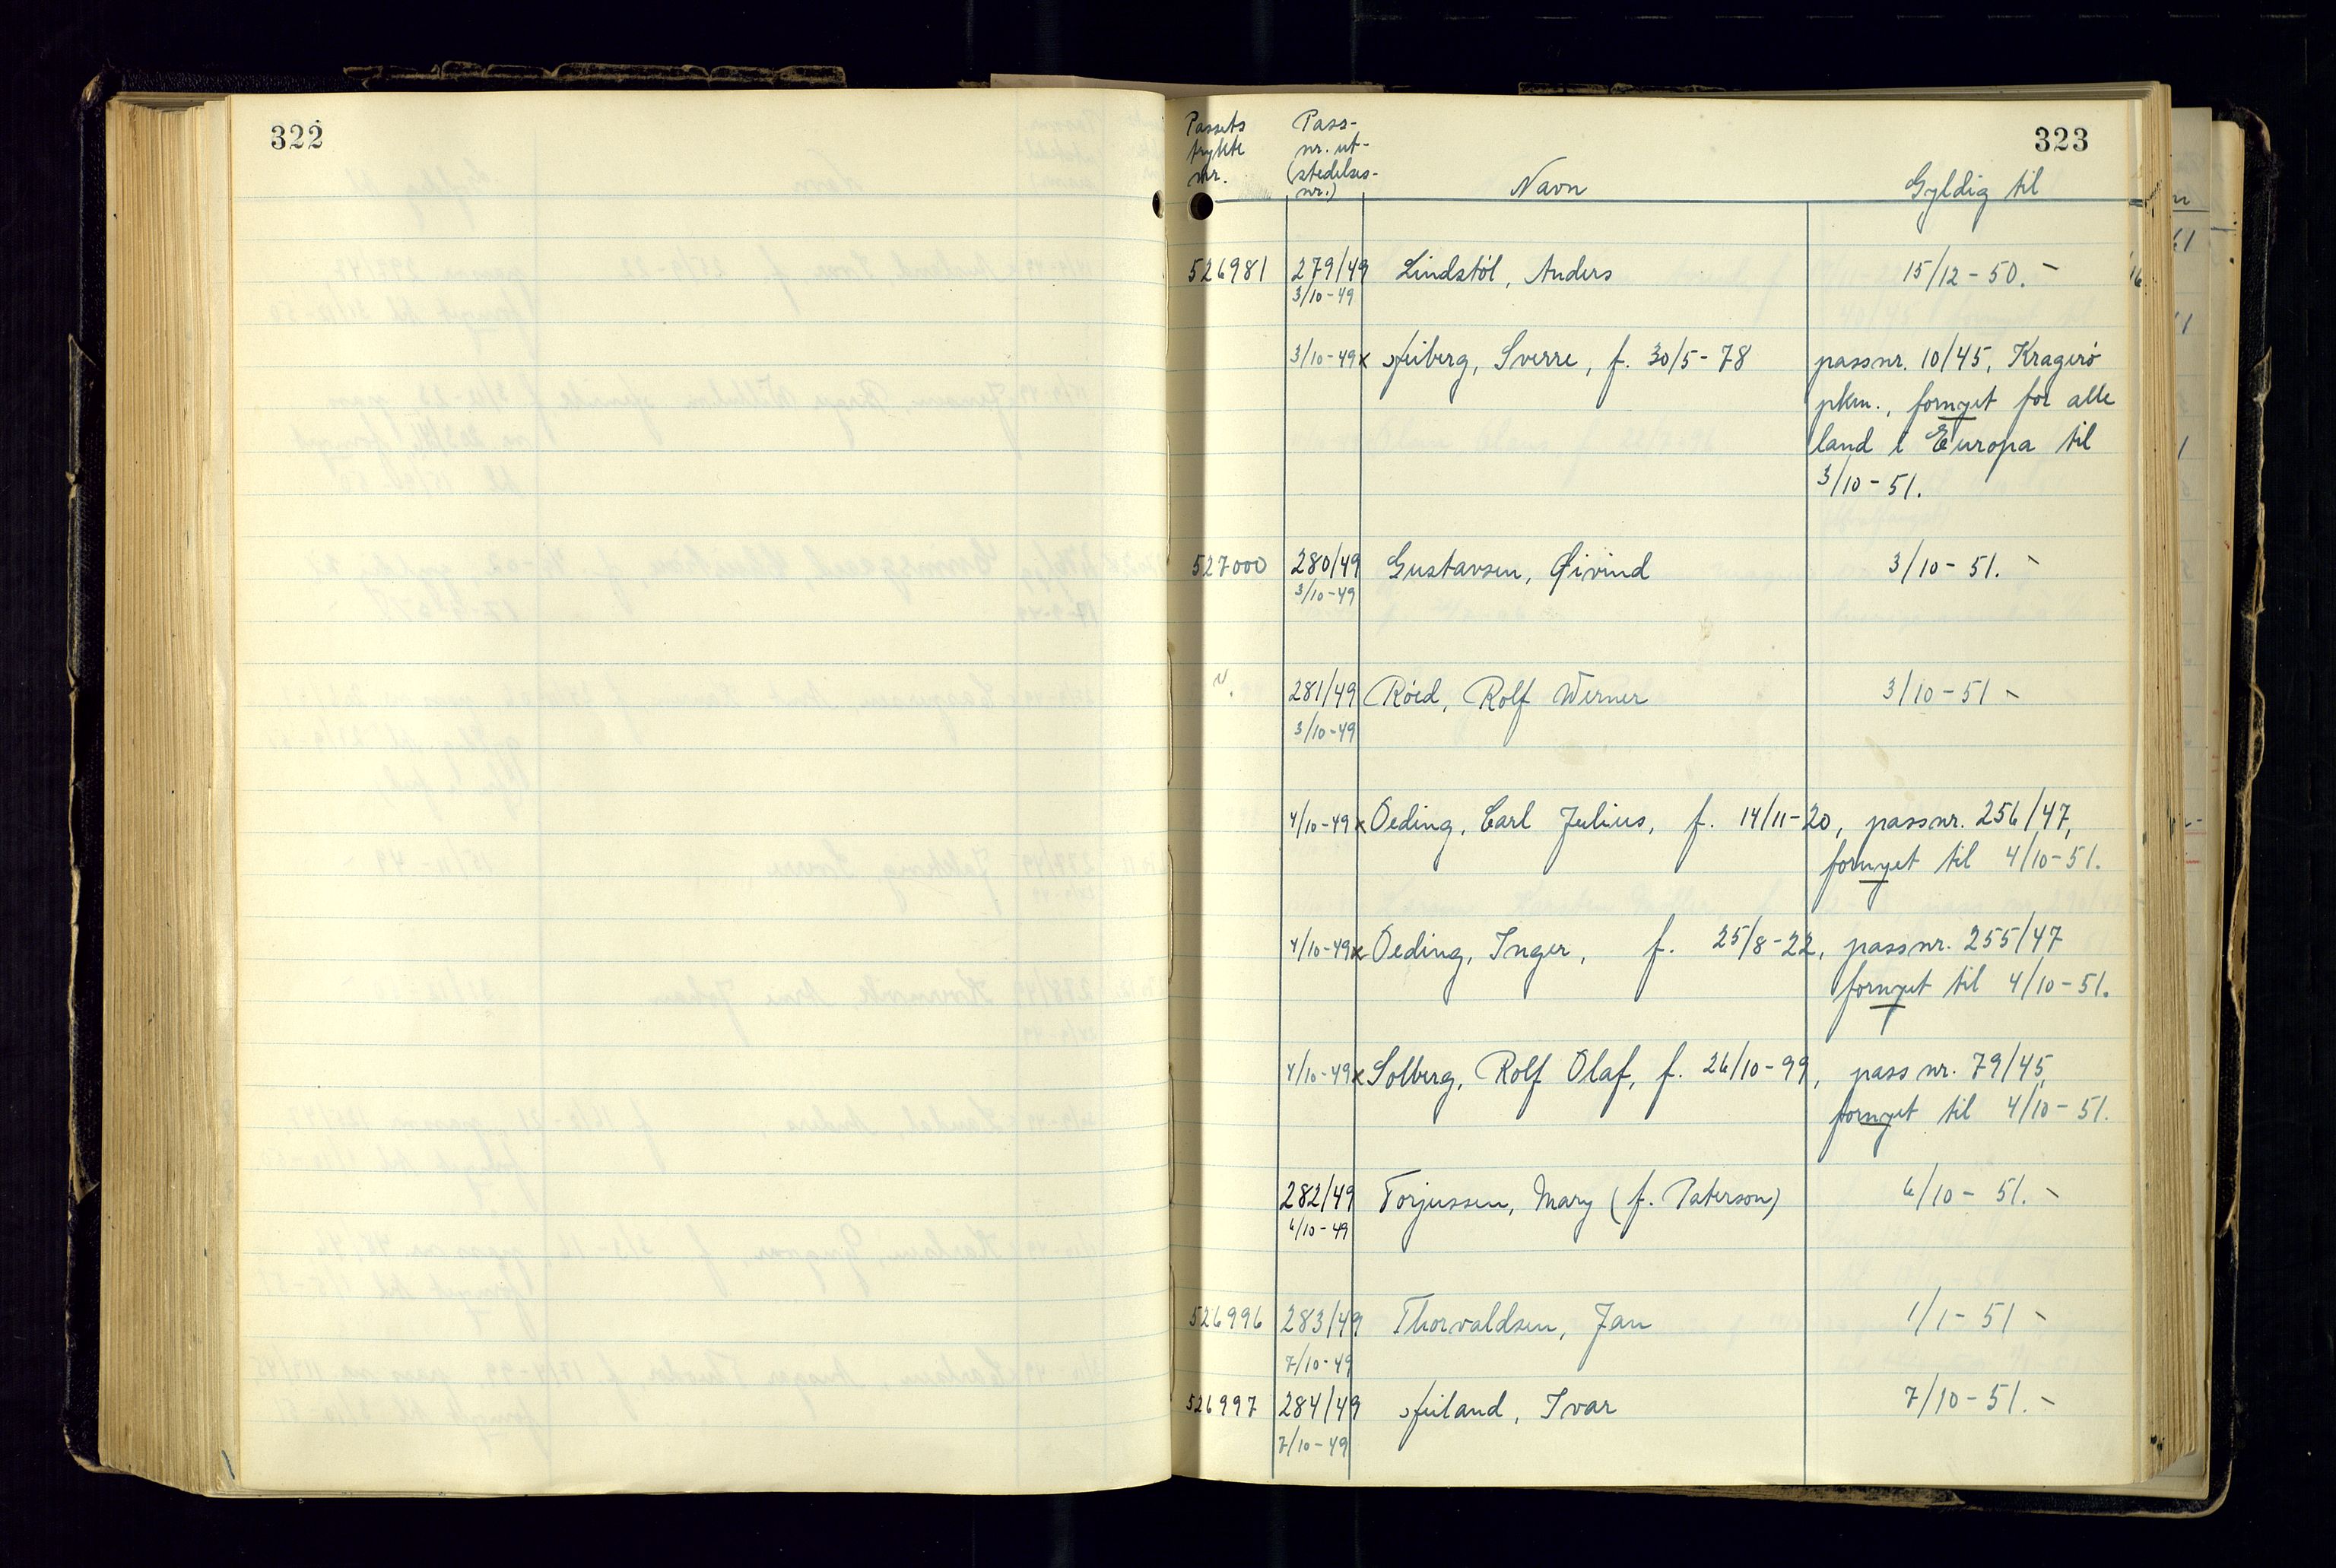 322
323
Passets trykte nr. Pass-nr. ut-(stedelses-nr.) Navn Gyldig til
526981 279/49 Lindstøl, Anders 15/12-50. -
3/10-49
3/10-49 x Heiberg, Sverre, f. 30/5-78 passnr. 10/45, Kragerø
pkm., fornyet for alle
land i Europa til
3/10-51.
527000 280/49 Gustavsen, Øivind 3/10-51. -
3/10-49
281/49 Røed, Rolf Werner 3/10-51 -
3/10-49
4/10-49 x Oeding, Carl Julius, f. 14/11-20, passnr. 256/47,
fornyet til 4/10-51.
4/10-49 x Oeding, Inger, f. 25/8-22, passnr. 255/47
fornyet til 4/10-51.
4/10-49 x Solberg, Rolf Olaf, f. 26/10-99, pass nr. 79/45,
fornyet til 4/10-51.
282/49 Torjussen, Mary (f. Paterson) 6/10-51. -
6/10-49
526996 283/49 Thorvaldsen, Jan 1/1-51 -
7/10-49
526997 284/49 Heiland, Ivar 7/10-51. -
7/10-49